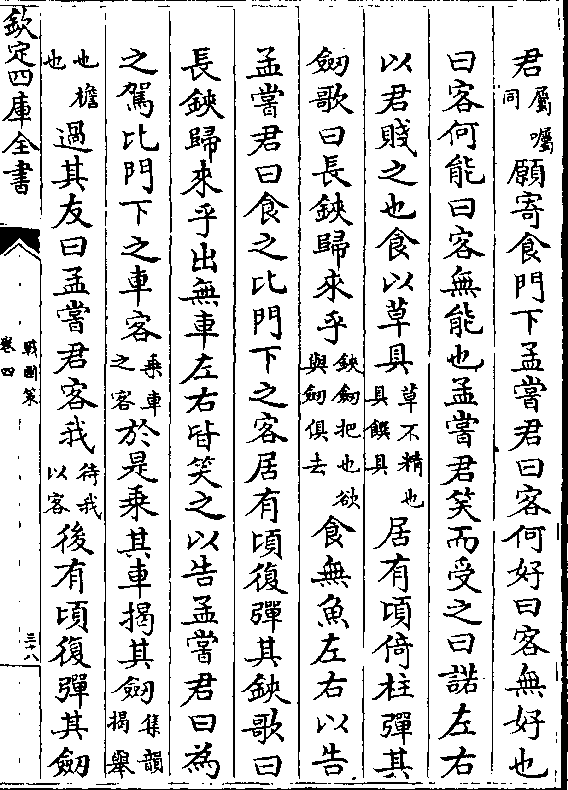 君屬囑同願寄食門下孟嘗君曰客何好曰客無好也
曰客何能曰客無能也孟嘗君笑而受之曰諾左右
以君賤之也食以草具草不精也具饌具居有頃倚柱彈其
劒歌曰長鋏歸來乎鋏劒把也欲與劒俱去食無魚左右以告
孟嘗君曰食之比門下之客居有頃復彈其鋏歌曰
長鋏歸來乎出無車左右皆笑之以告孟嘗君曰為
之駕比門下之車客乘車之客於是乘其車揭其劒集韻揭舉
也檐也過其友曰孟嘗君客我待我以客後有頃復彈其劒
欽定四庫全書
戰國策
卷四
三十八